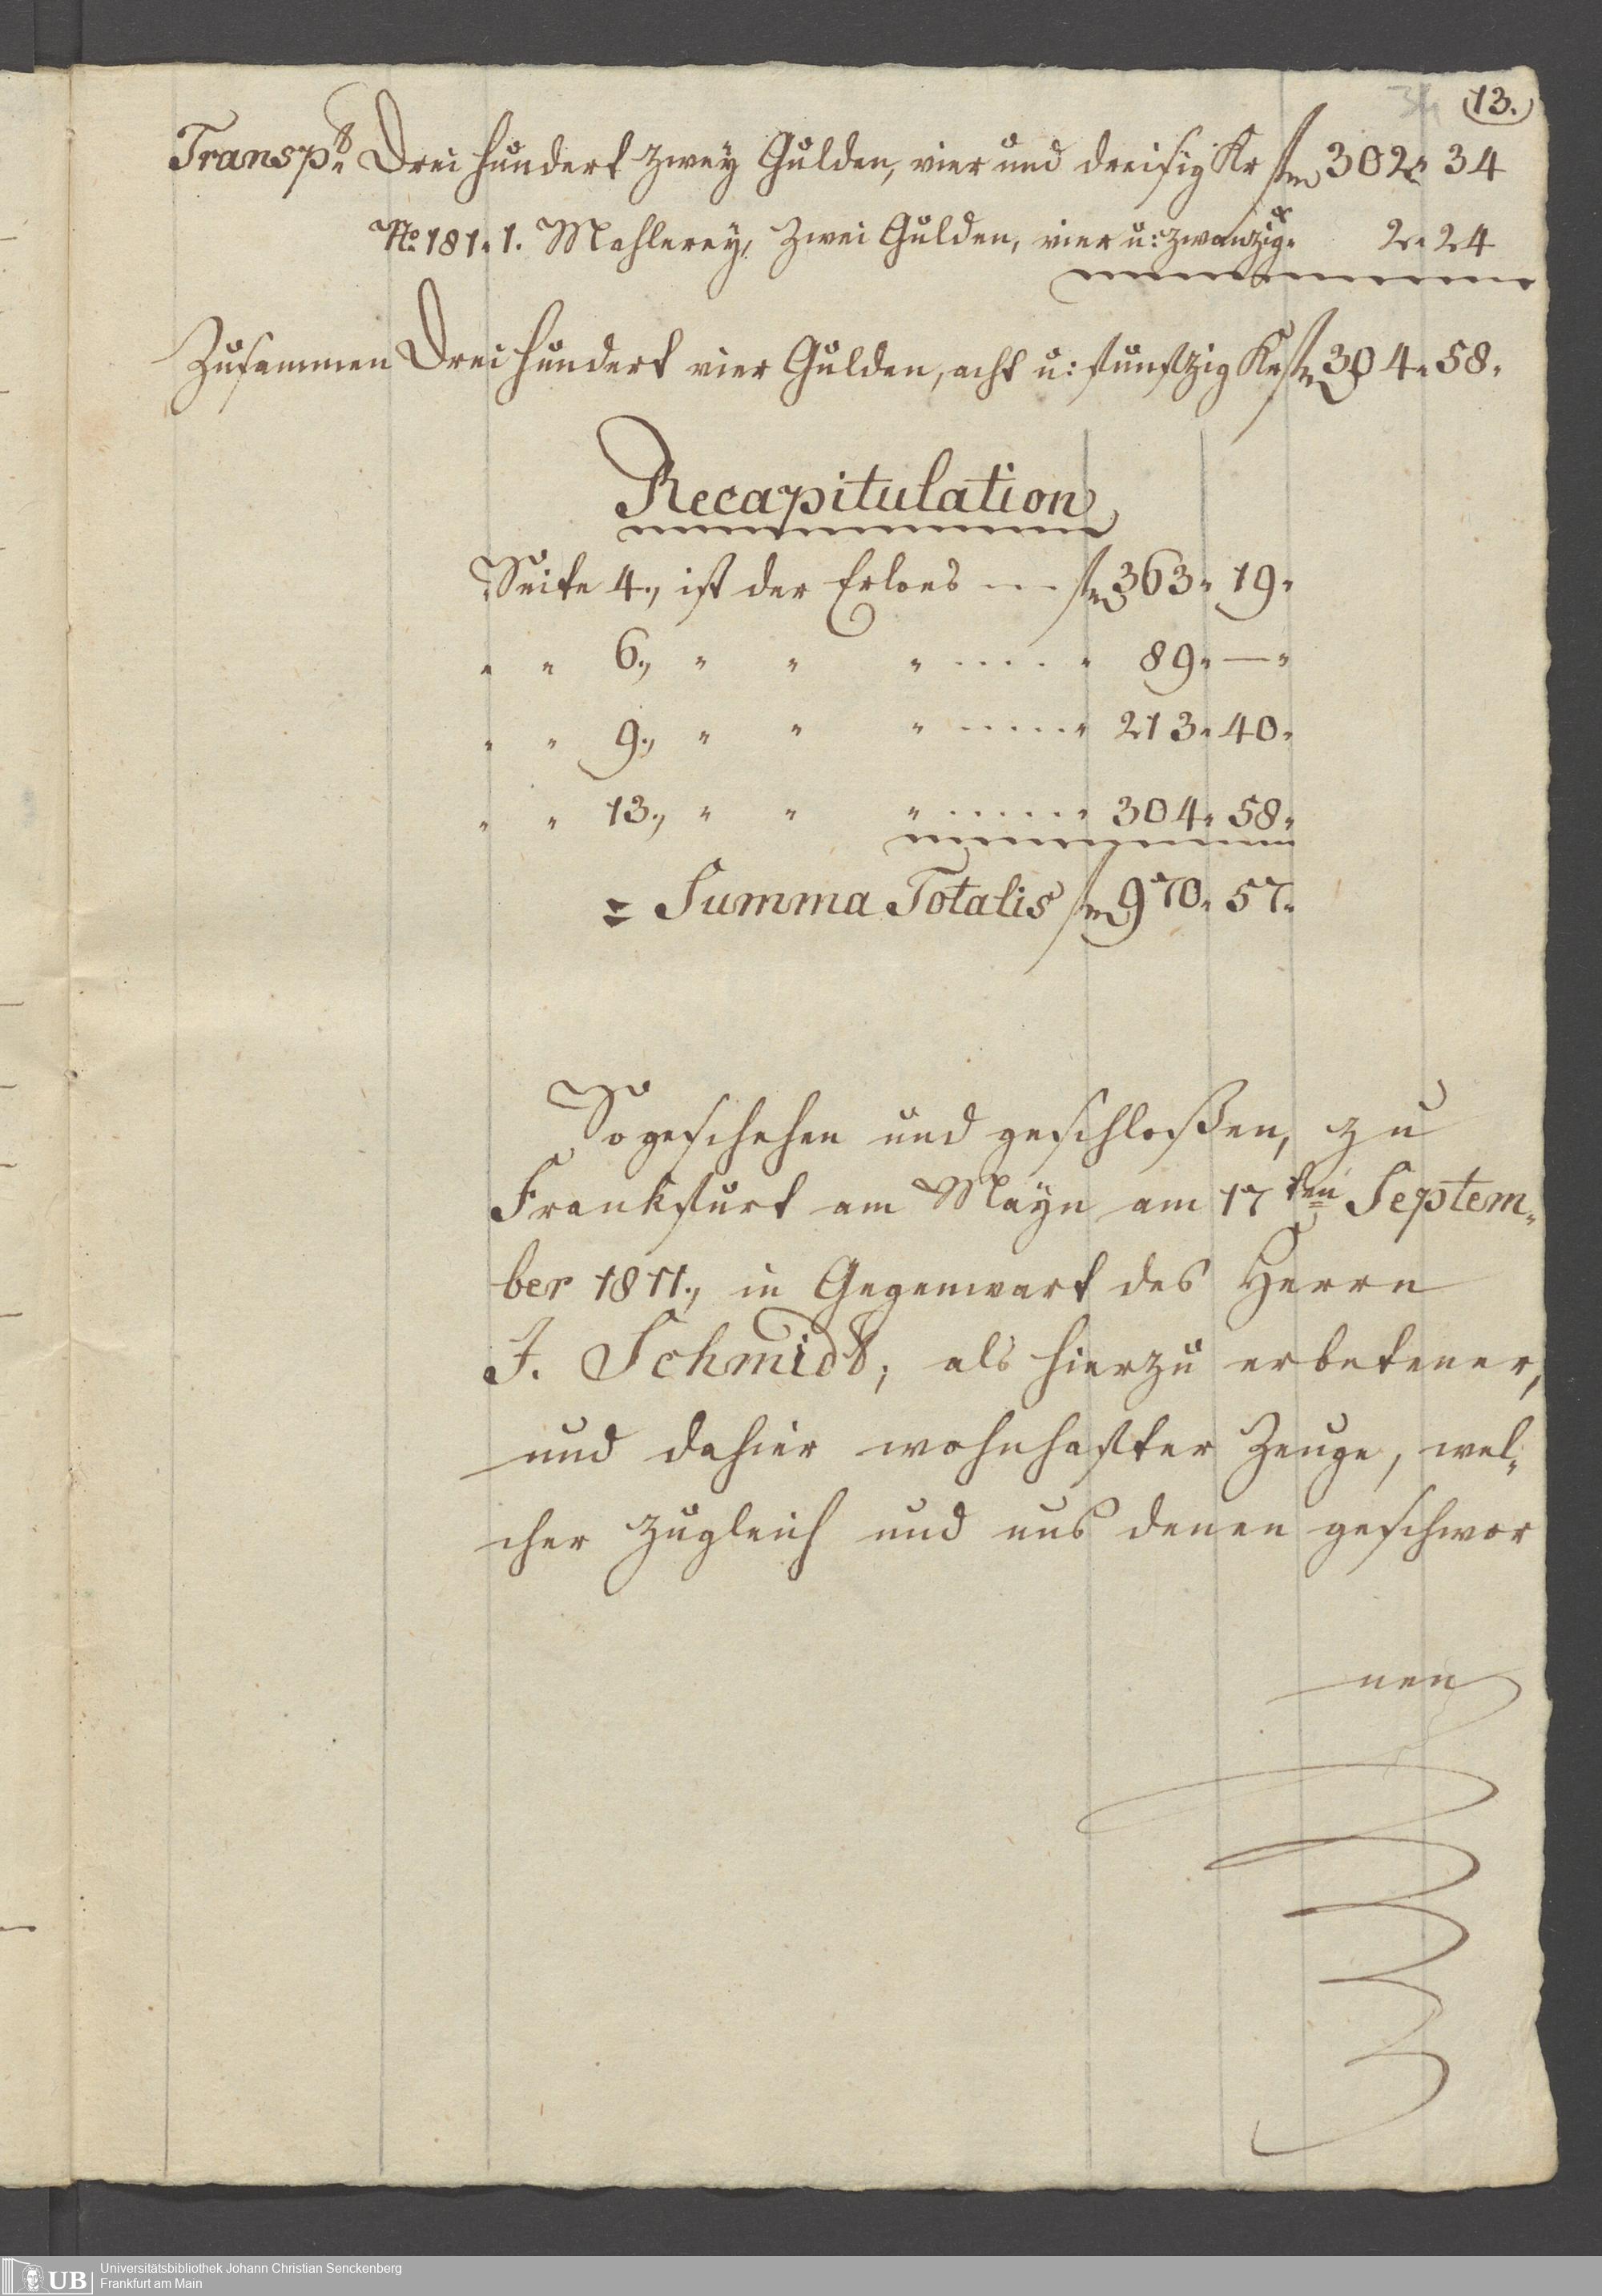 34 (13.)
Transpt. Drei hundert zwey Gulden, vier und dreisig Kr fl 302 " 34
No. 181 " 1. Mahlerey, Zwei Gulden, vier u: zwanzig " 2 " 24
Zusammen Drei hundert vier Gulden, acht u: funfzig Kr fl 304 " 58 "
Recapitulation
Seite 4., ist der Erloes --- fl 363 " 19 "
" " 6., " " " ..... " 89 " — "
" " 9., " " " ..... " 213 " 40 "
" " 13., " " " ...... " 304 " 58 "
= Summa Totalis fl 970 " 57 "
So geschehen und geschloßen, zu
Frankfurt am Mayn am 17ten Septem„
ber 1811., in Gegenwart des Herrn
J. Schmidt, als hierzu erbetener,
und dahier wohnhafter Zeuge, wel„
cher zugleich und nebst denen geschwor
nen
UB Universitätsbibliothek Johann Christian Senckenberg
Frankfurt am Main